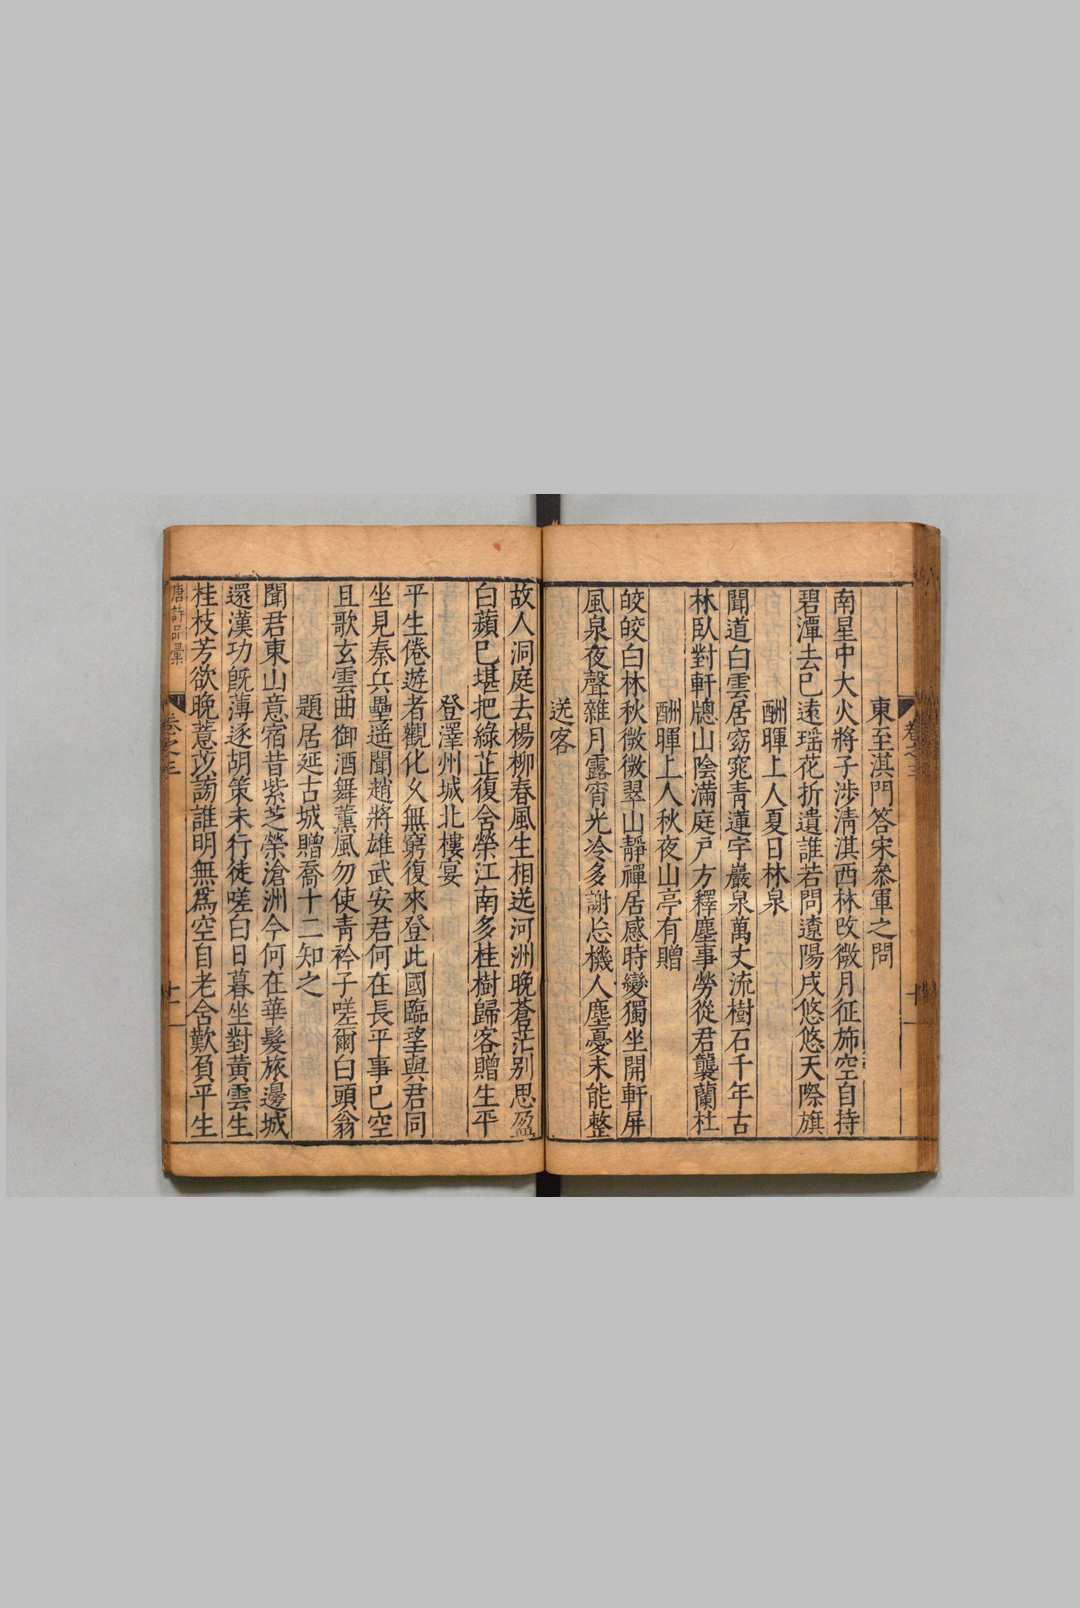 東至淇門答宋叅軍之問
南星中大火將子涉清淇西林改微月征斾空自持
碧潭去已遠瑶花折遺誰若問遼陽戍悠悠天際旗
酬暉上人夏日林泉
聞道白雲居窈窕青蓮宇巖泉萬丈流樹石千年古
林臥對軒牕山陰滿庭戶方釋塵事勞從君襲蘭杜
酬暉上人秋夜山亭有贈
皎皎白林秋微微翠山靜禪居感時變獨坐開軒屏
風泉夜聲雜月露宵光冷多謝忘機人塵憂未能整
送客
故人洞庭去楊柳春風生相送河洲晚蒼茫别思盈
白蘋已堪把綠芷復含榮江南多桂樹歸客贈生平
登澤州城北樓宴
平生倦遊者觀化久無窮復來登此國臨望與君同
坐見秦兵壘遥聞趙將雄武安君何在長平事已空
且歌玄雲曲御酒舞薰風勿使青衿子嗟爾白頭翁
題居延古城贈喬十二知之
聞君東山意宿昔紫芝榮滄洲今何在華髮旅邊城
還漢功旣薄逐胡策未行徒嗟白日暮坐對黃雲生
桂枝芳欲晚薏苡謗誰明無爲空自老含歎負平生
唐詩品彙
卷之三
十一